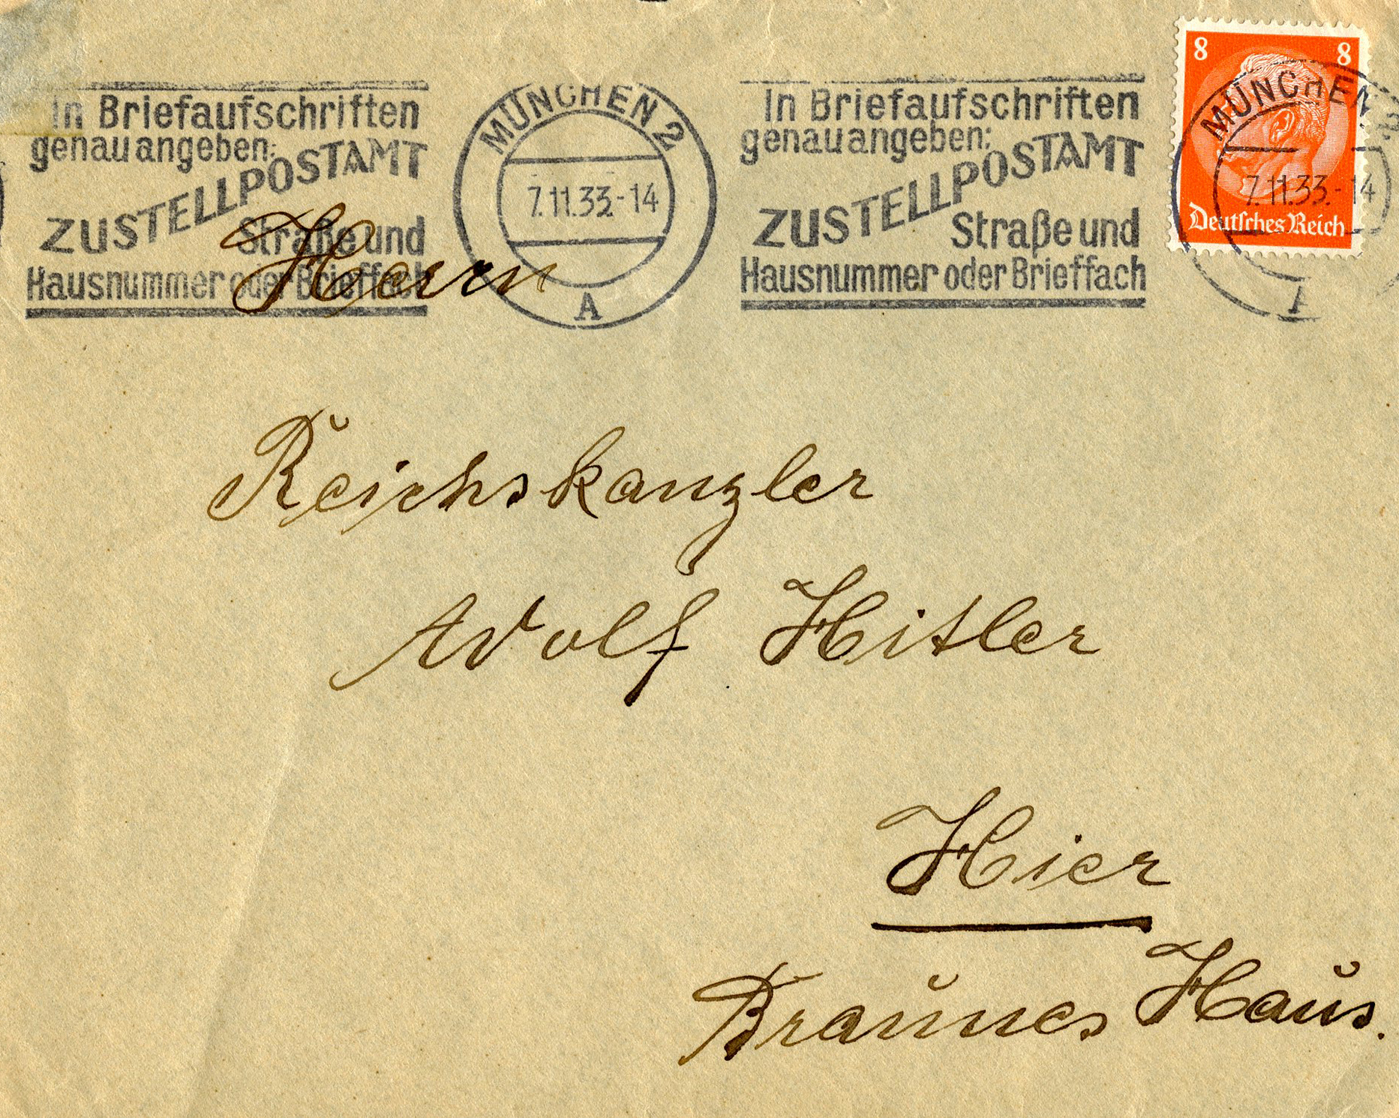 In Briefaufschriften
genau angeben:
ZUSTELLPOSTAMT
Straße und
Hausnummer oder Brieffach
MÜNCHEN 2
7.11.33.-14
A
In Briefaufschriften
genau angeben:
ZUSTELLPOSTAMT
Straße und
Hausnummer oder Brieffach
8 8
MÜNCHEN
7.11.33.-14
A
Deutsches Reich
Herrn
Reichskanzler
Adolf Hitler
Hier
Braunes Haus.